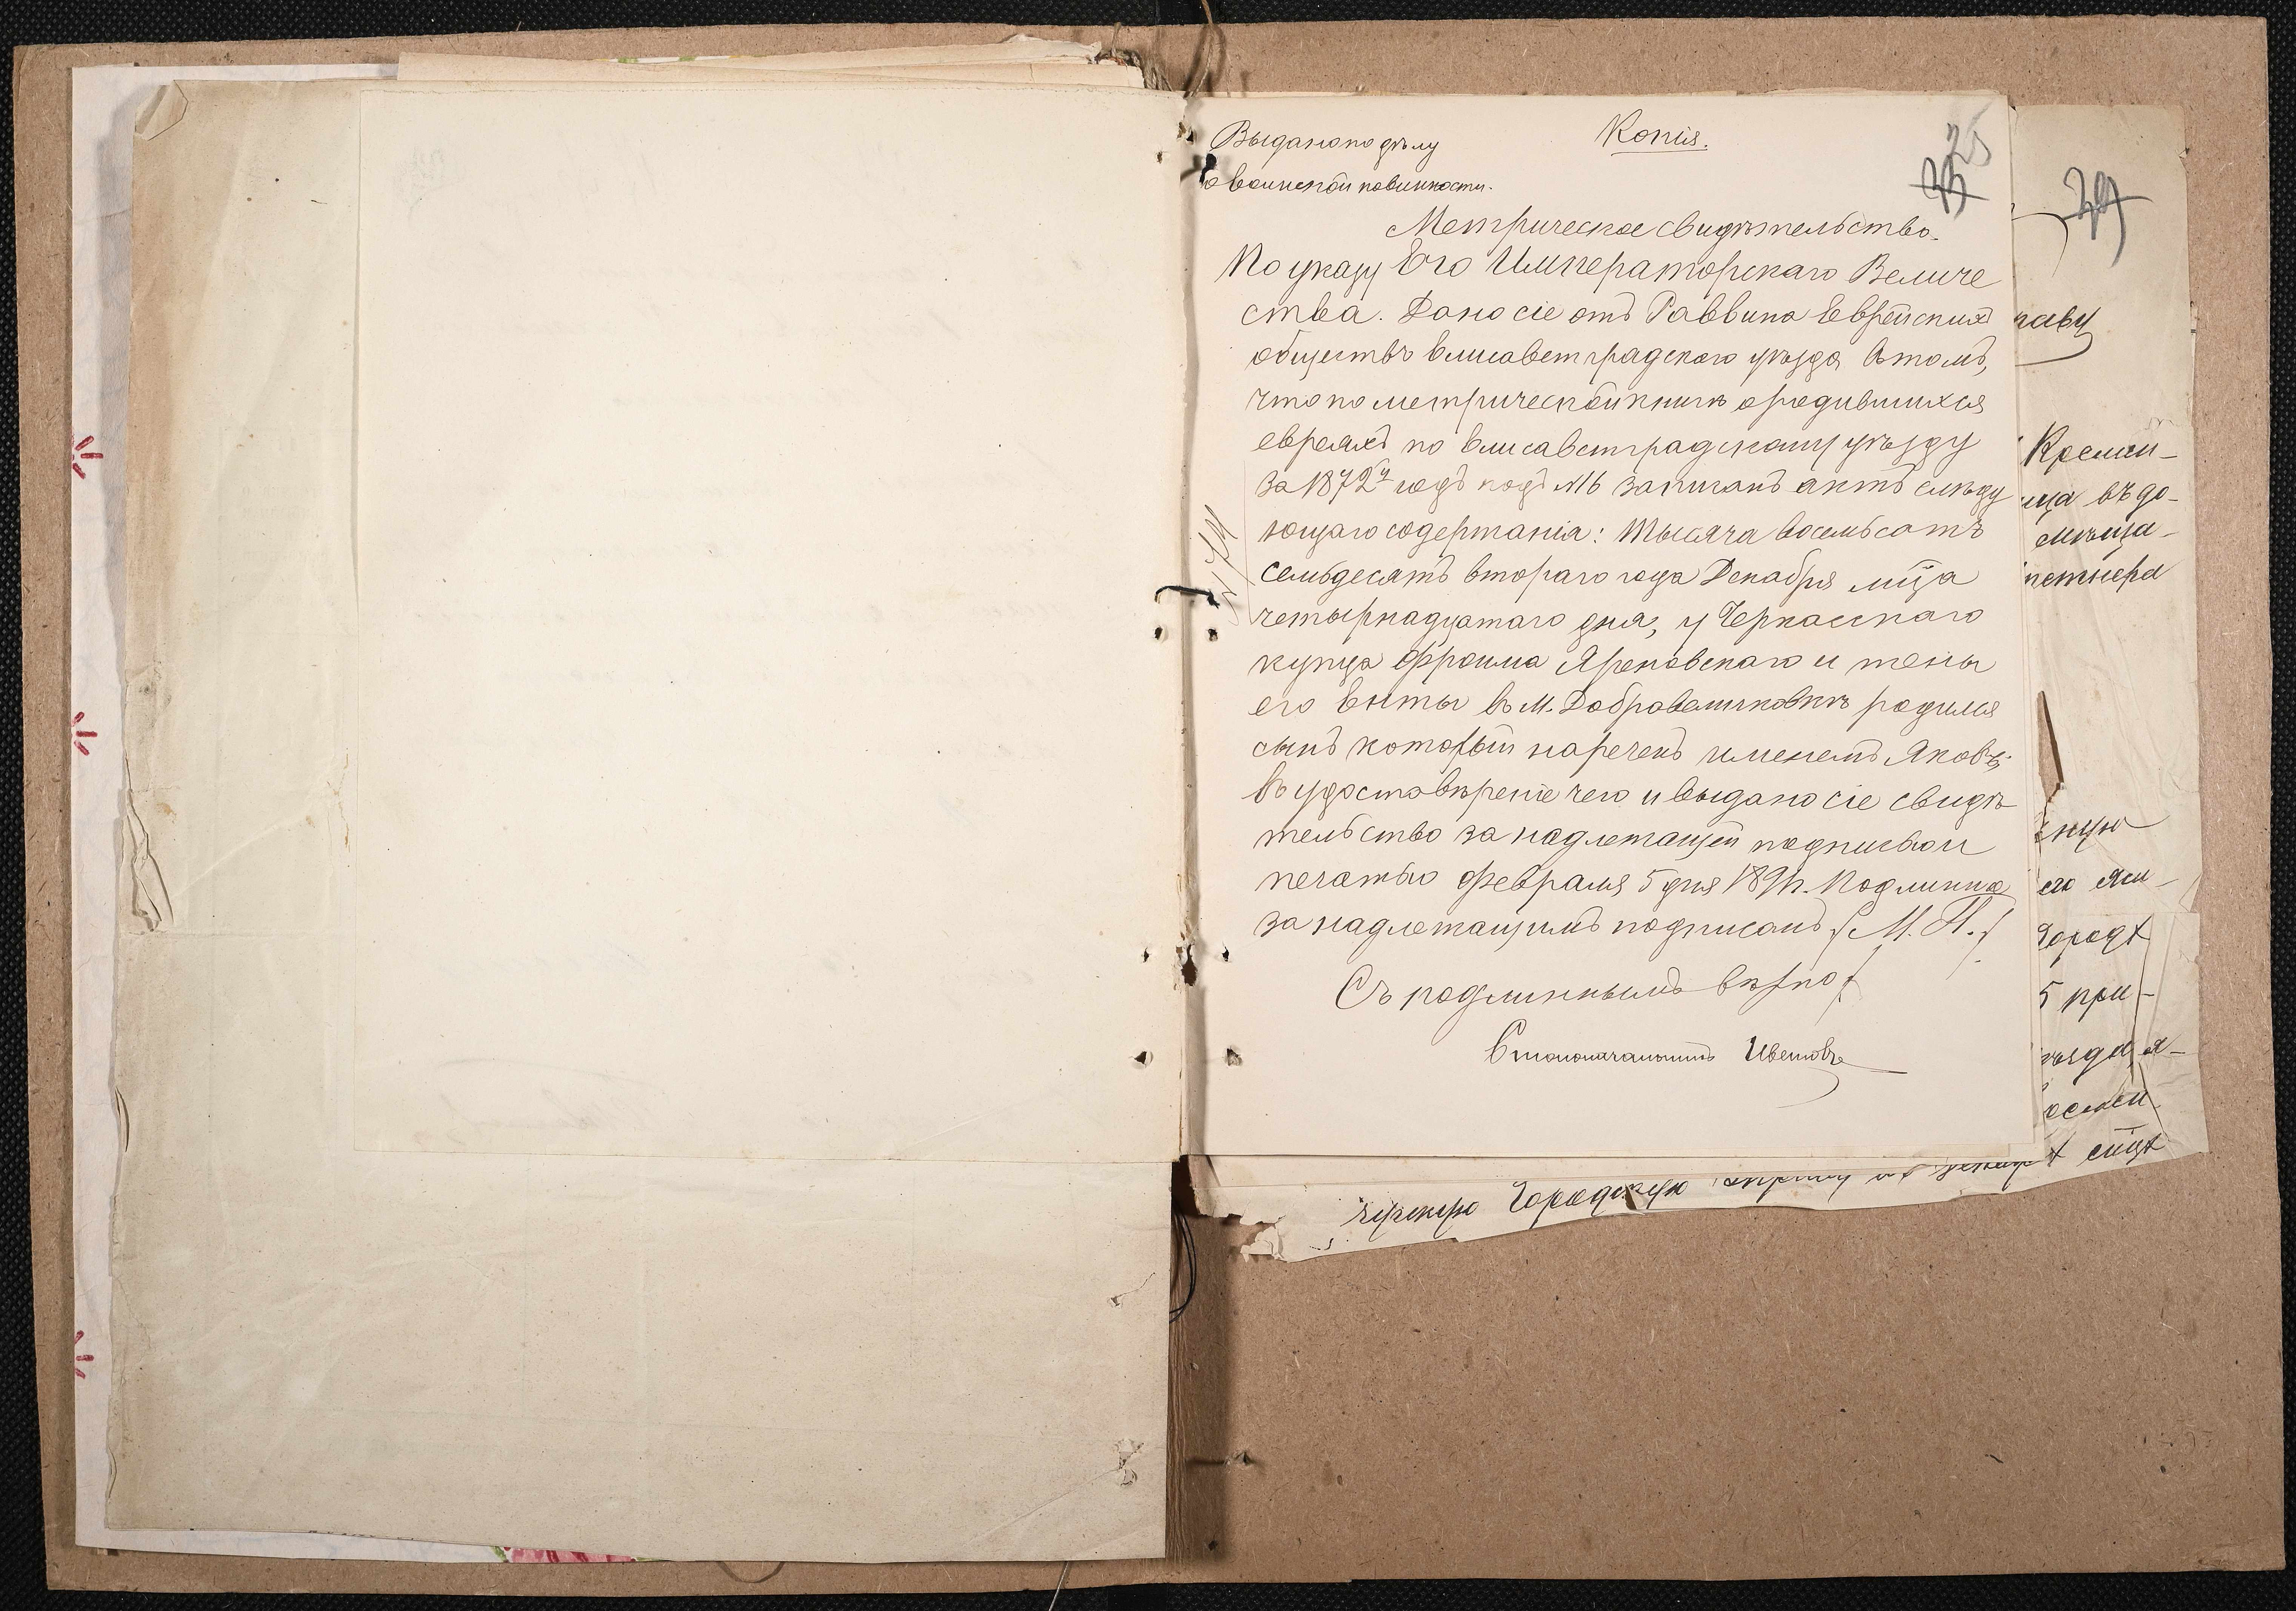 Копія.
25
33
Выдано по дѣлу
о воинской повинности.
Метрическое свидѣтельство.
По указу Его Императорскаго Величе
ства. Дано сіе отъ Раввина Еврейскихъ
обществъ Елисаветградскаго уѣзда въ томъ,
что по метрической книгѣ о родившихся
евреяхъ по Елисаветградскому уѣзду
за 1872й годъ подъ №16 записанъ актъ слѣду
ющаго содержанія: Тысяча восемьсотъ
семьдесятъ втораго года Декабря мца
четырнадцатаго дня, у Черкасскаго
купца Фроима Яроховскаго и жены
его Енты въ м. Добровеличковкѣ родился
сынъ который нареченъ именемъ Яковъ;
Въ удостовѣреніе чего и выдано сіе свидѣ
тельство за надлежащей подписью и
печатью Февраля 5 дня 189 г. Подлинное
за надлежащимъ подписомъ /М. П./
Съ подлиннымъ вѣрно:
Столоначальникъ
39
Кремен-
ща въ до-
мѣща-
его Яко-
городѣ
5 при-
городскую